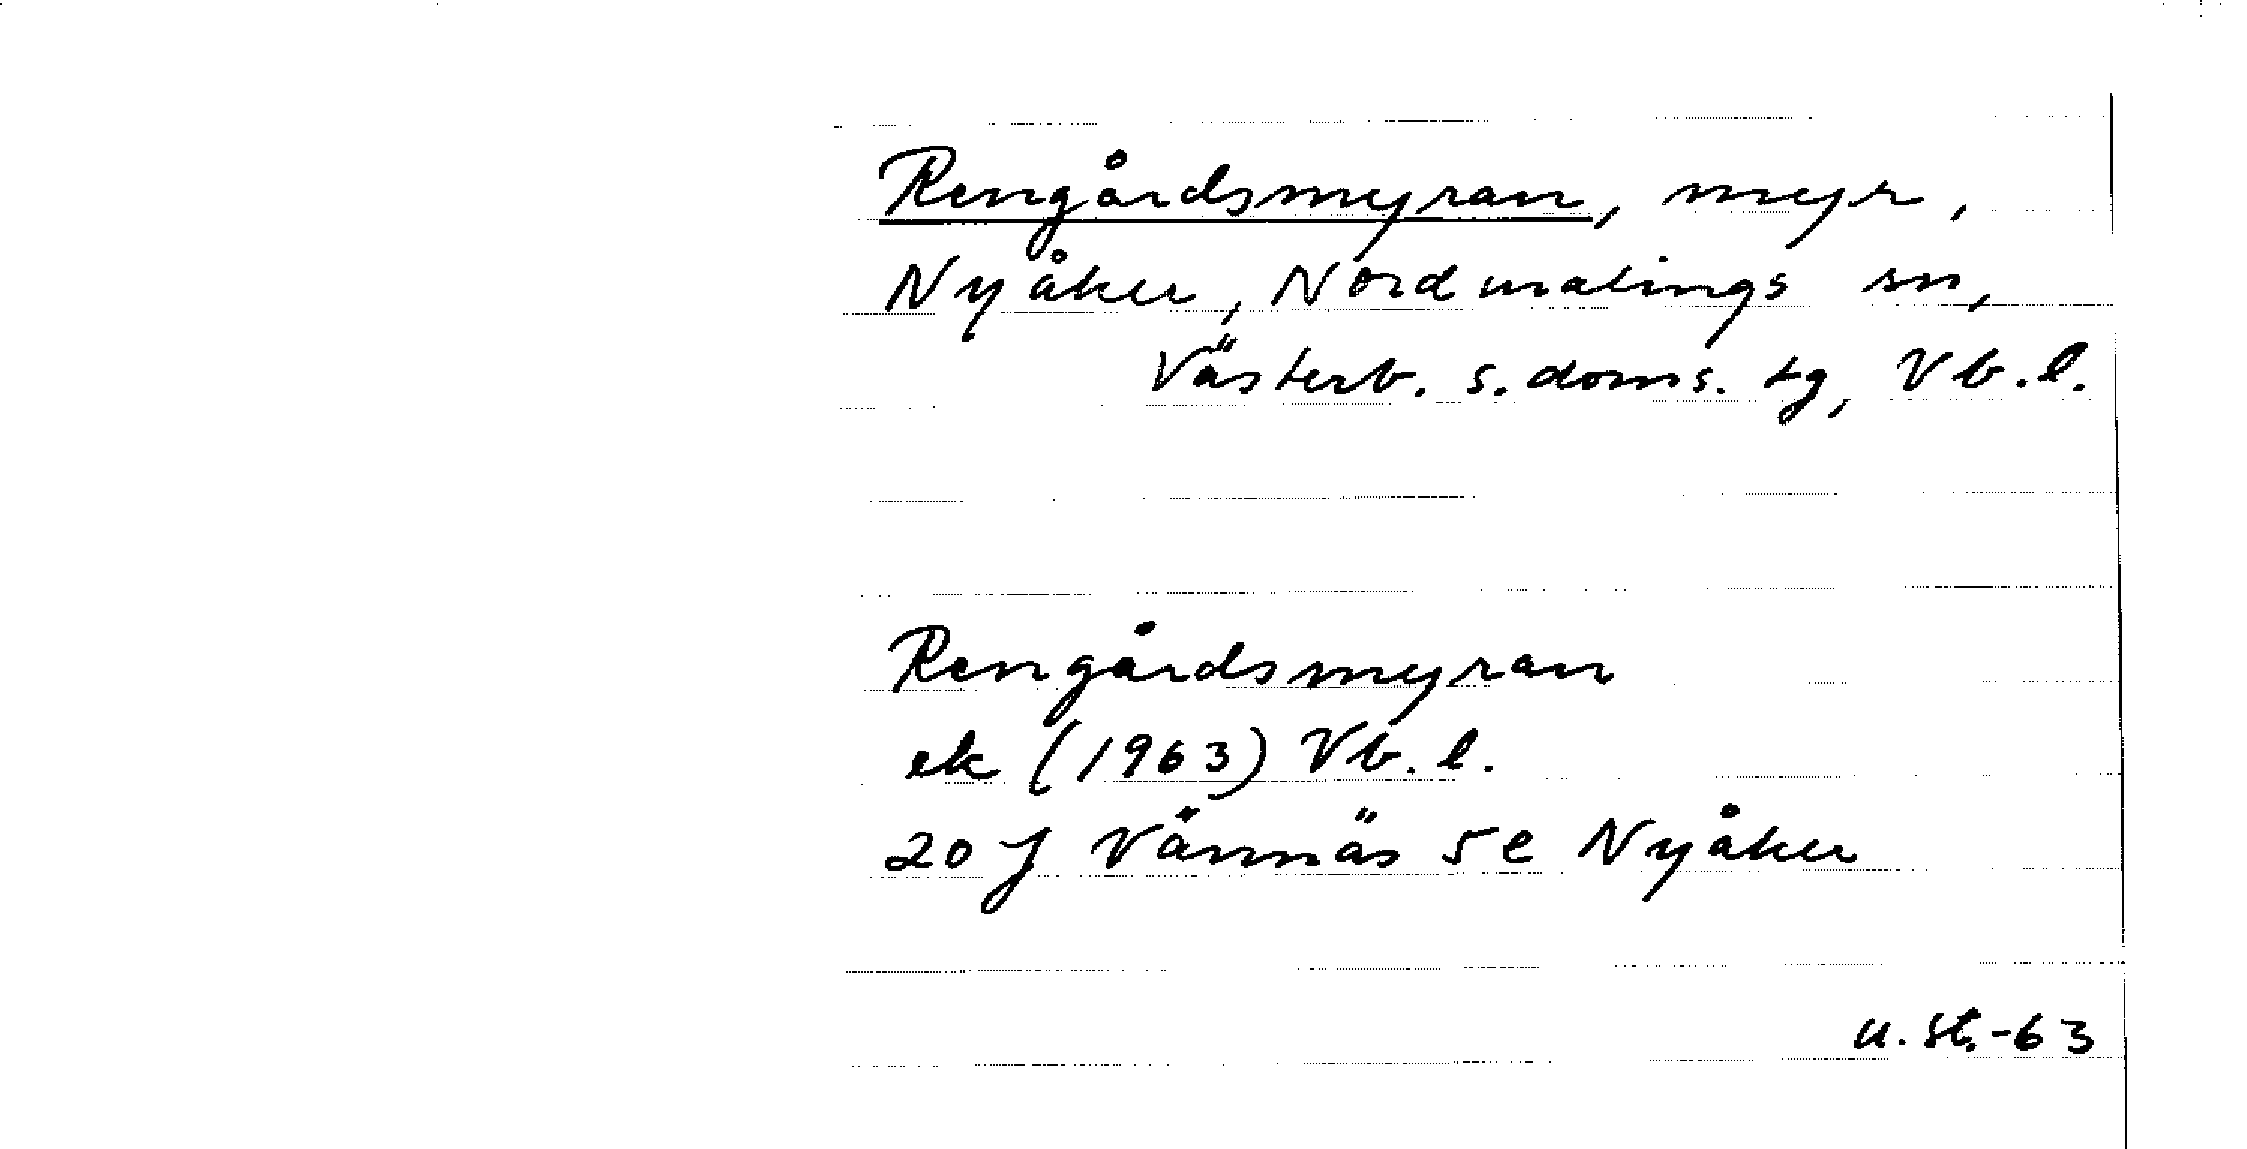 Rengårdsmyran, myr,
Nyåker, Nordmalings sn,
Västerb. s. doms. tg, Vb. l.
Rengårdsmyran
ek (1963) Vb. l.
20 J Vännäs 5e Nyåker
u. St.-63